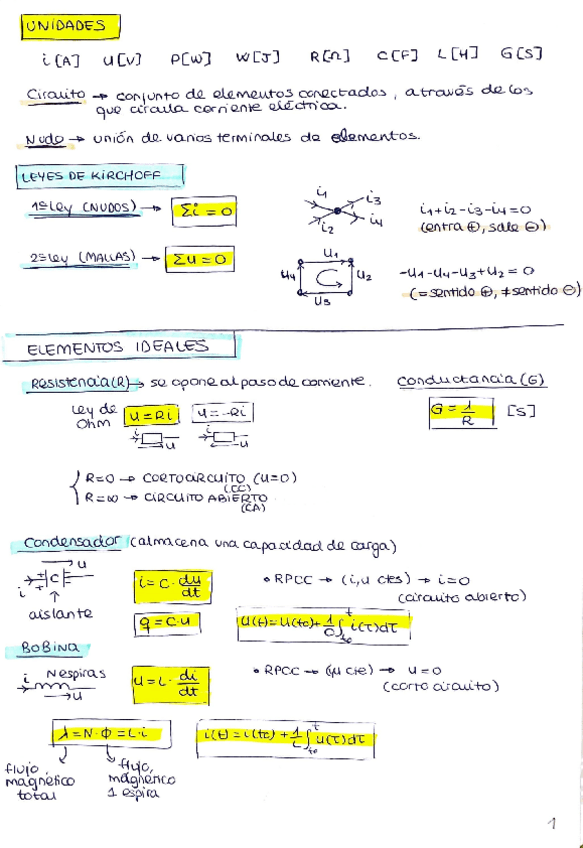 UNIDADES
i [A] U[V] P[W] W[J] R[Ω] C[F] L[H] G[S]
Circuito → conjunto de elementos conectados, a través de los
que circula corriente eléctrica.
Nudo → unión de varios terminales de elementos.
LEYES DE KIRCHOFF
1ª Ley (NUDOS) → Σi = 0
i1 i3
i2 i4
i1+i2-i3-i4=0
(entra ⊕, sale ⊖)
2ª Ley (MALLAS) → Σu = 0
U1
U4 U2
U3
-U1-U4-U3+U2=0
(= sentido ⊕, ≠ sentido ⊖)
ELEMENTOS IDEALES
Resistencia (R) → se opone al paso de corriente.
Conductancia (G)
Ley de
Ohm
U=Ri U=-Ri
G = 1/R [S]
i u i u
R=0 → CORTOCIRCUITO (U=0)
(CC)
R=∞ → CIRCUITO ABIERTO
(CA)
Condensador (almacena una capacidad de carga)
u
i + C
aislante
i = C · du/dt
• RPCC → (i,u ctes) → i=0
(circuito abierto)
q = C·u
BOBINA
N espiras
i
u
U = L · di/dt
• RPCC → (i,u cte) → u=0
(corto circuito)
λ = N·Φ = L·i
i(t) = i(to) + 1/L ∫ u(τ)dτ
t
to
flujo
magnético
total
flujo,
magnético
1 espira
1